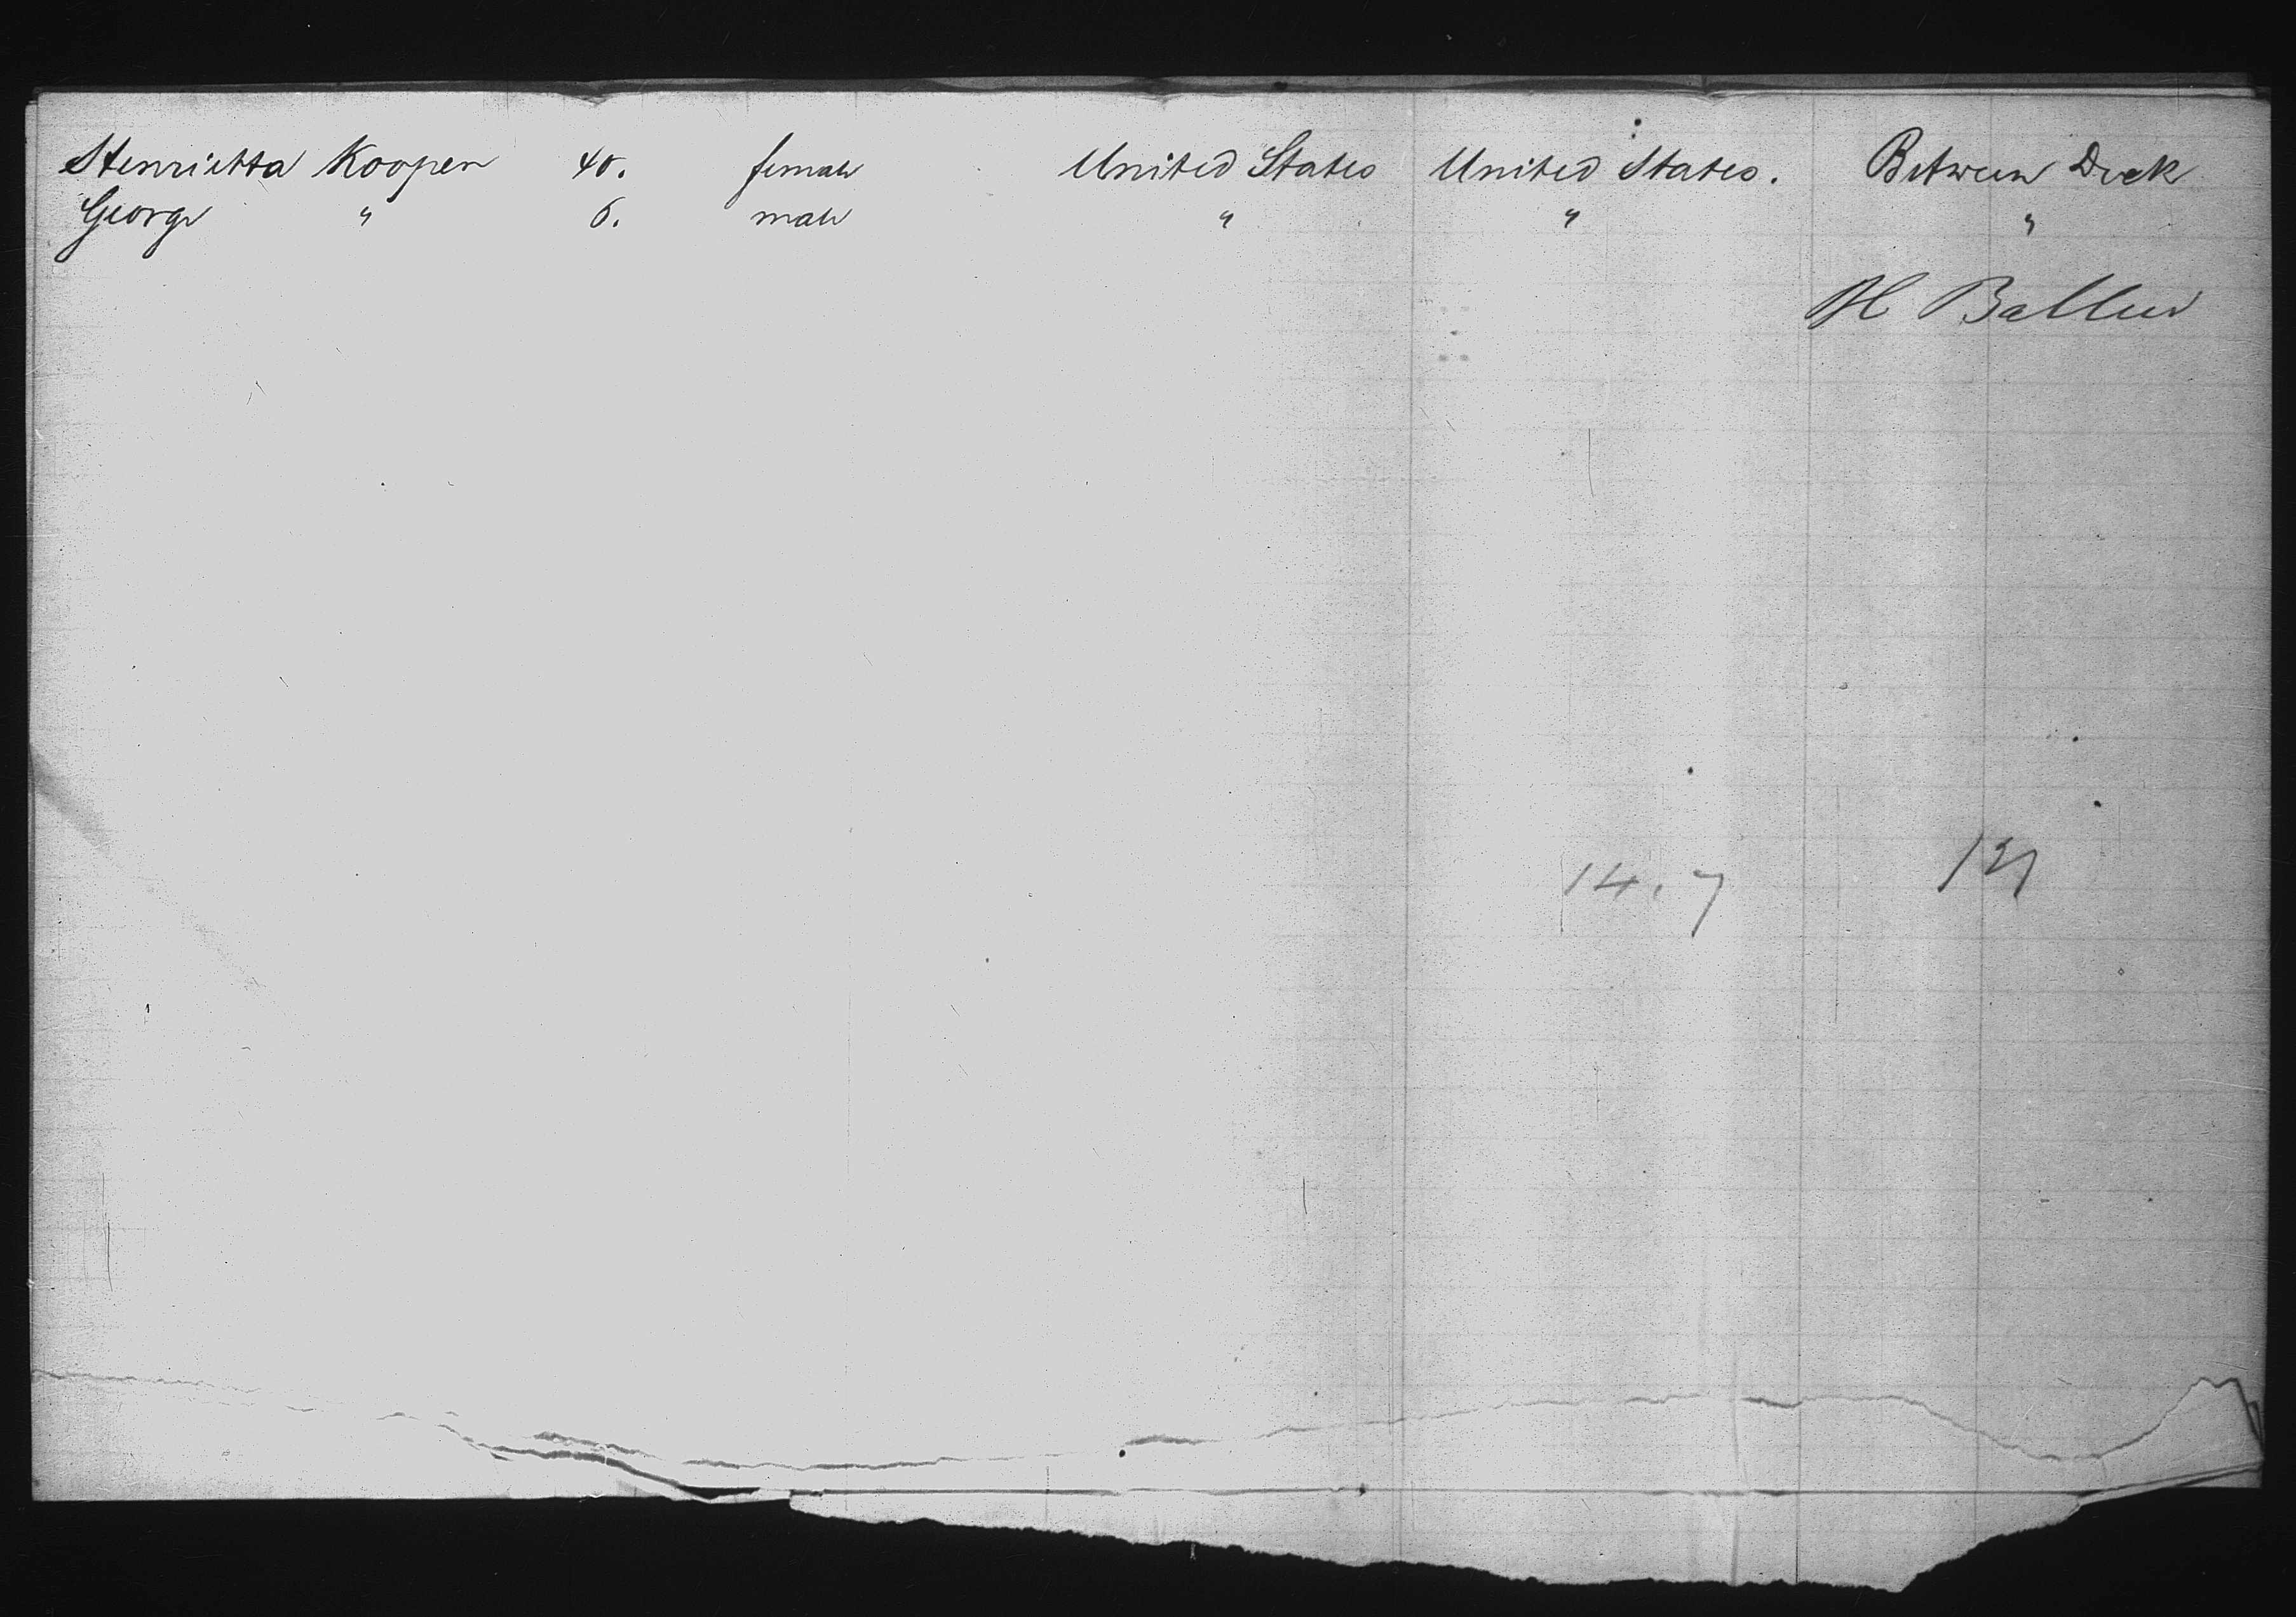 Henrietta Koopen 40. female United States United States. Between Deck
George " 6. male " " "
H Ballew
14. 7
121